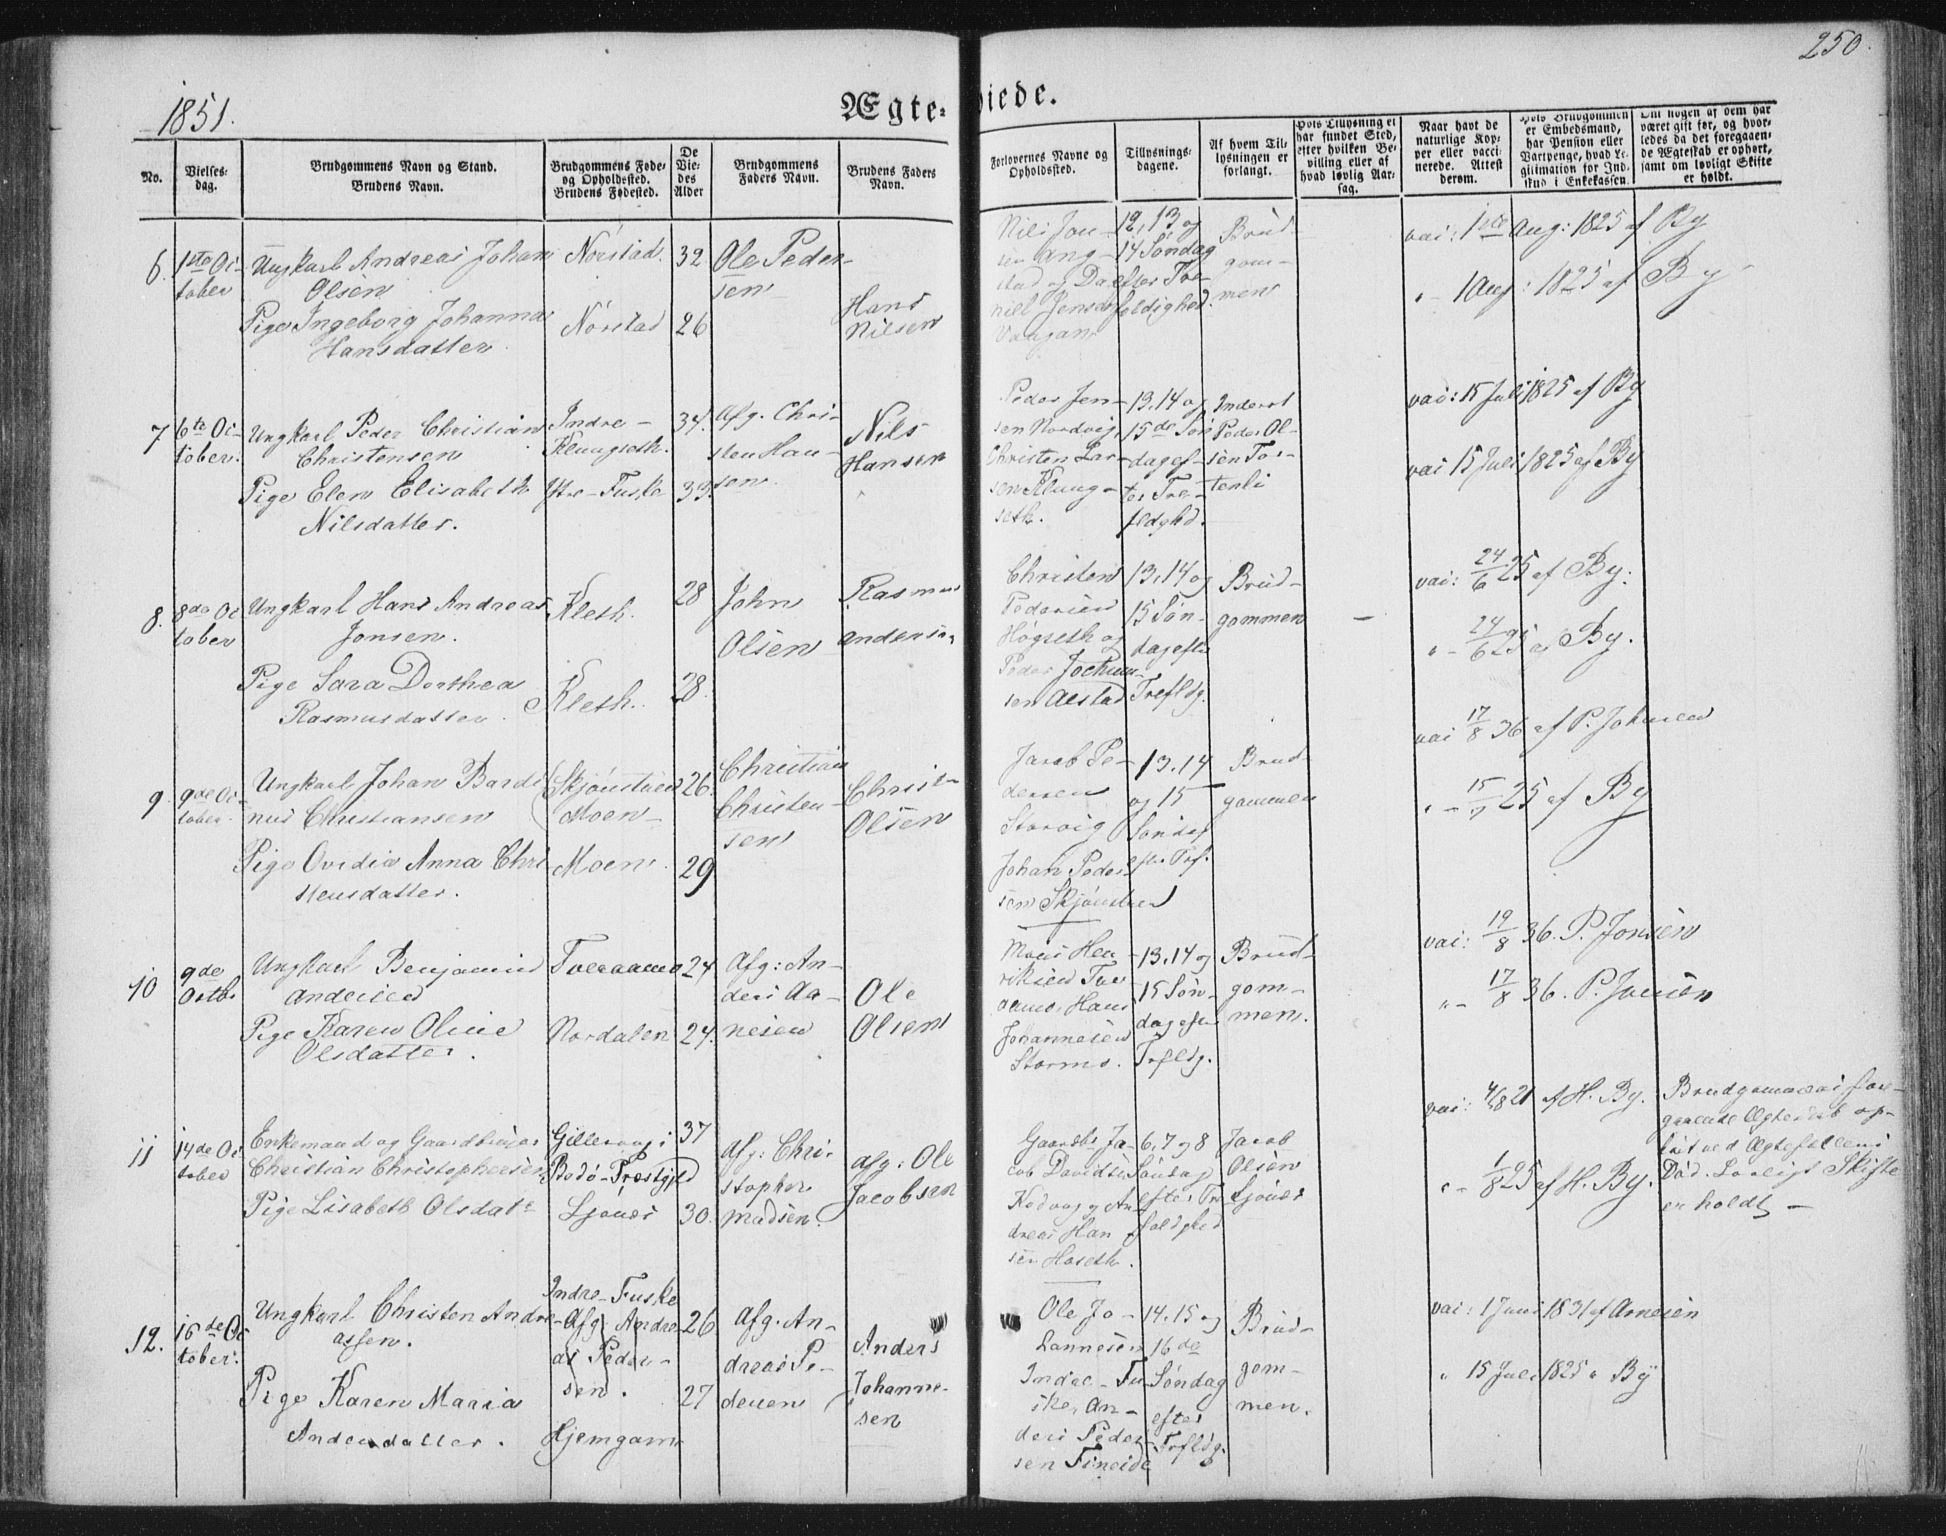 250.
1851.
Ægte-viede.
No.
Vielses-
dag.
Brudgommens Navn og Stand.
Brudens Navn.
Brudgommens Føde-
og Opholdsted.
Brudens Fødested.
De
Vie-
des
Alder
Brudgommens
Faders Navn.
Brudens Faders
Navn.
Forlovernes Navne og
Opholdsted.
Tillysnings-
dagene.
Af hvem Til-
lysningen er
forlangt.
Hvis Tillysning ei
har fundet Sted,
efter hvilken Be-
villing eller af
hvad lovlig Aar-
sag.
Naar havt de
naturlige Kop-
per eller vacci-
nerede. Attest
derom.
Hvis Brudgommen
er Embedsmand,
har Pension eller
Vartpenge, hvad Le-
gitimation for Ind-
skud i Enkekassen.
Om nogen af dem har
været gift før, og hvor-
ledes da det foregaaen-
de Ægteskab er ophørt,
samt om lovligt Skifte
er holdt.
6.
1ste Oc-
tober
Ungkarl Andreas Johan
Olsen
Pige Ingeborg Johanna
Hansdatter
Nørstad
Nørstad
32
26
Ole Peder-
sen
Hans
Nilsen
Nils Jen-
sen
stad og Da-
niel Jensen
12, 13 og
14 Søndag
efter Tre-
foldighed.
Brud-
gom-
men
vac: 1ste Aug: 1825 af By
" - 1 Aug: 1825 af By
7
6te Oc-
tober.
Ungkarl Peder Christian
Christensen
Pige Elen Elisabeth
Nilsdatter.
Indre-
Klungseth.
Ytre-Fuske
34.
33.
Afg. Chri-
sten Han-
sen.
Nils
Hansen
Peder Jen-
sen Nordvig,
Christen Lar-
sen Klung-
seth.
13, 14 og
15de Søn-
dag ef-
ter Tre-
fldghd.
Inderst
Peder Ol-
sen Tor-
tenli
vac: 15 Juli 1825 af By
vac 15 Juli 1825 af By
8.
8de Oc
tober
Ungkarl Hans Andreas
Jonsen.
Pige Sara Dorthea
Rasmusdatter.
Kleth.
Kleth.
28
28.
John
Olsen
Rasmus
Andersen
Christen
Pedersen
Høgseth og
Peder Jochum-
sen Alstad
13, 14 og
15 Søn-
dag efter
Trefldg.
Brud-
gommen
-
vac: 24/6 25 af By.
" - 24/6 25 af By.
9
9de Oc-
tober
Ungkarl Johan Bardi-
nus Christiansen
Pige Ovidia Anna Chri-
stensdatter.
Skjønstuen
Moen
Moen.
26.
29
Christian
Christen-
sen
Christ-
Olsen
Jacob Pe-
dersen
Storvig
Johan Peder
sen Skjønstuen
13, 14
og 15
Sondag
efter Tref.
Brud
gommen
vac 17/8 36 af P. Johnsen
" - 15/7 25 af By
10
9de
Octb.
Ungkarl Benjamin
Andersen
Pige Karen Oline
Olsdatter.
Tveraamo
Nordalen
24
24.
Afg: An-
ders Aa-
nesen
Ole
Olsen
Hen-
riksen Tver
aamo, Hans
Johannesen
Stormo.
13, 14 og
15 Søn-
dag efter
Trfldg.
Brud-
gom-
men.
vac: 19/8 36. P. Jonsen
" - 17/8 36. P. Jonsen
11
14de Oc
tober
Enkemand og Gaardbruger
Christian Christophersen
Pige Lisabeth Olsdatr
Gillesvaag i
Bodø-Præstgjeld
Ljønes
37
30.
Afg: Chri-
stopher
Madsen.
Afg: Ole
Jacobsen
Gaardbr Ja-
cob Davidsen
Kodvag og An-
dreas Han-
sen Hoseth.
6, 7 og 8
Søndag
efter Tre
foldghed
Jacob
Olsen
Ljønes
vac: 4/8 21 af H. By.
" - 1/8 25 af H. By.
Brudgommens fore-
gaaende Ægteskab op-
løst ved Ægtefællens
Død. Lovligt Skifte
er holdt -
12.
16de Oc
tober.
Ungkarl Christen Andre-
assen.
Pige Karen Maria
Andersdatter.
Indre-Fuske
Afg. Andre-
as Peder-
sen.
Hjemgam
26
27
Afg. An-
dreas Pe-
dersen
Anders
Johanne-
sen
Ole Jo-
hannesen
Indre-Fu-
ske, An-
ders Peder-
sen Fineide
14, 15 og
16de
Søndag
efter
Trfldg.
Brud-
gom-
men.
vac: 1 Juni 1831 af Arnesen
" 15 Juli 1825 " By